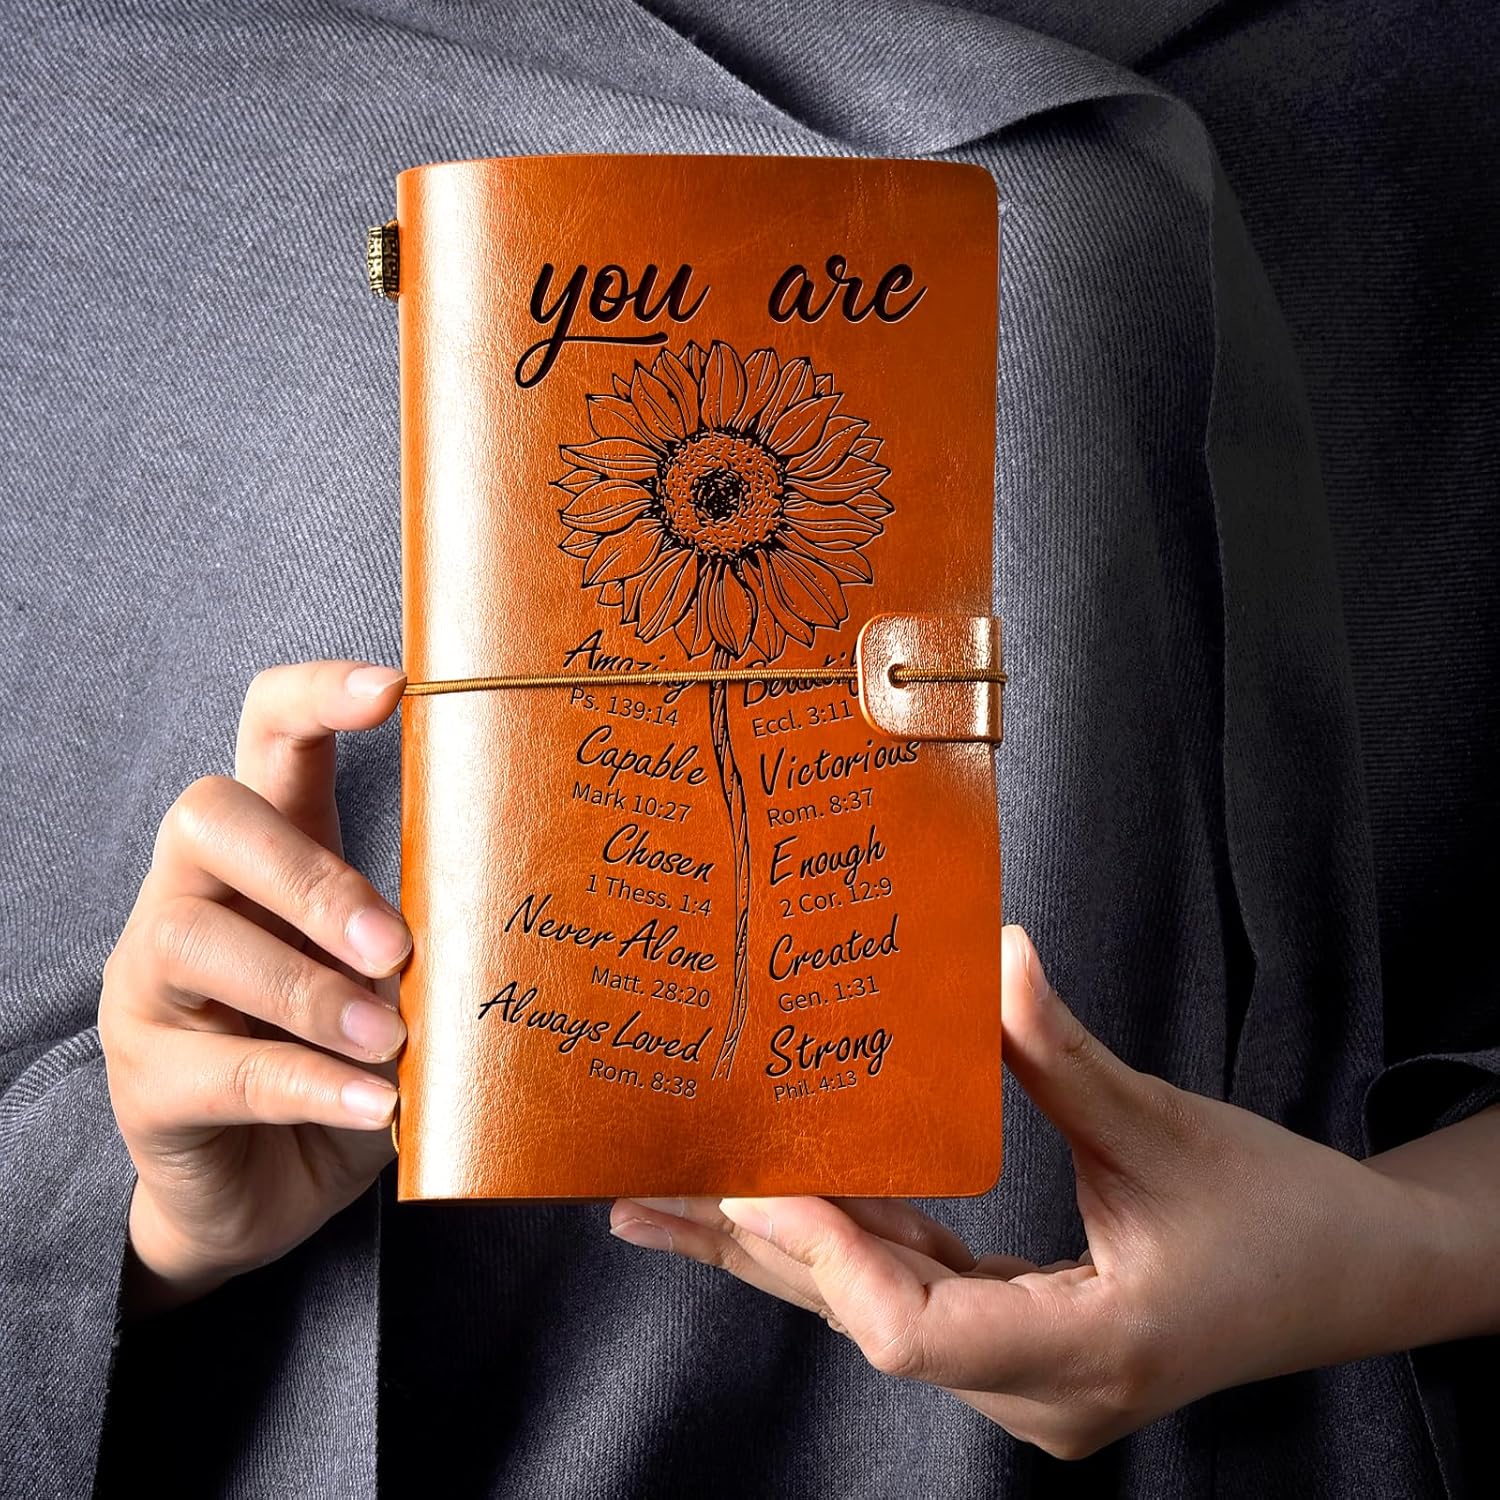 you are
Amazing
Ps. 139:14
Capable
Mark 10:27
Chosen
1 Thess. 1:4
Never Alone
Matt. 28:20
Always Loved
Rom. 8:38
Eccl. 3:11
Victorious
Rom. 8:37
Enough
2 Cor. 12:9
Created
Gen. 1:31
Strong
Phil. 4:13